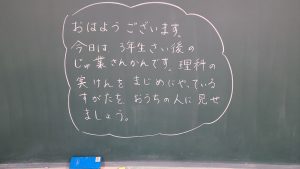 おはようございます。
今日は 3年生さい後の
じゅ業さんかんです。理科の
実けんを まじめにやっている
すがたを、おうちの人に見せ
ましょう。